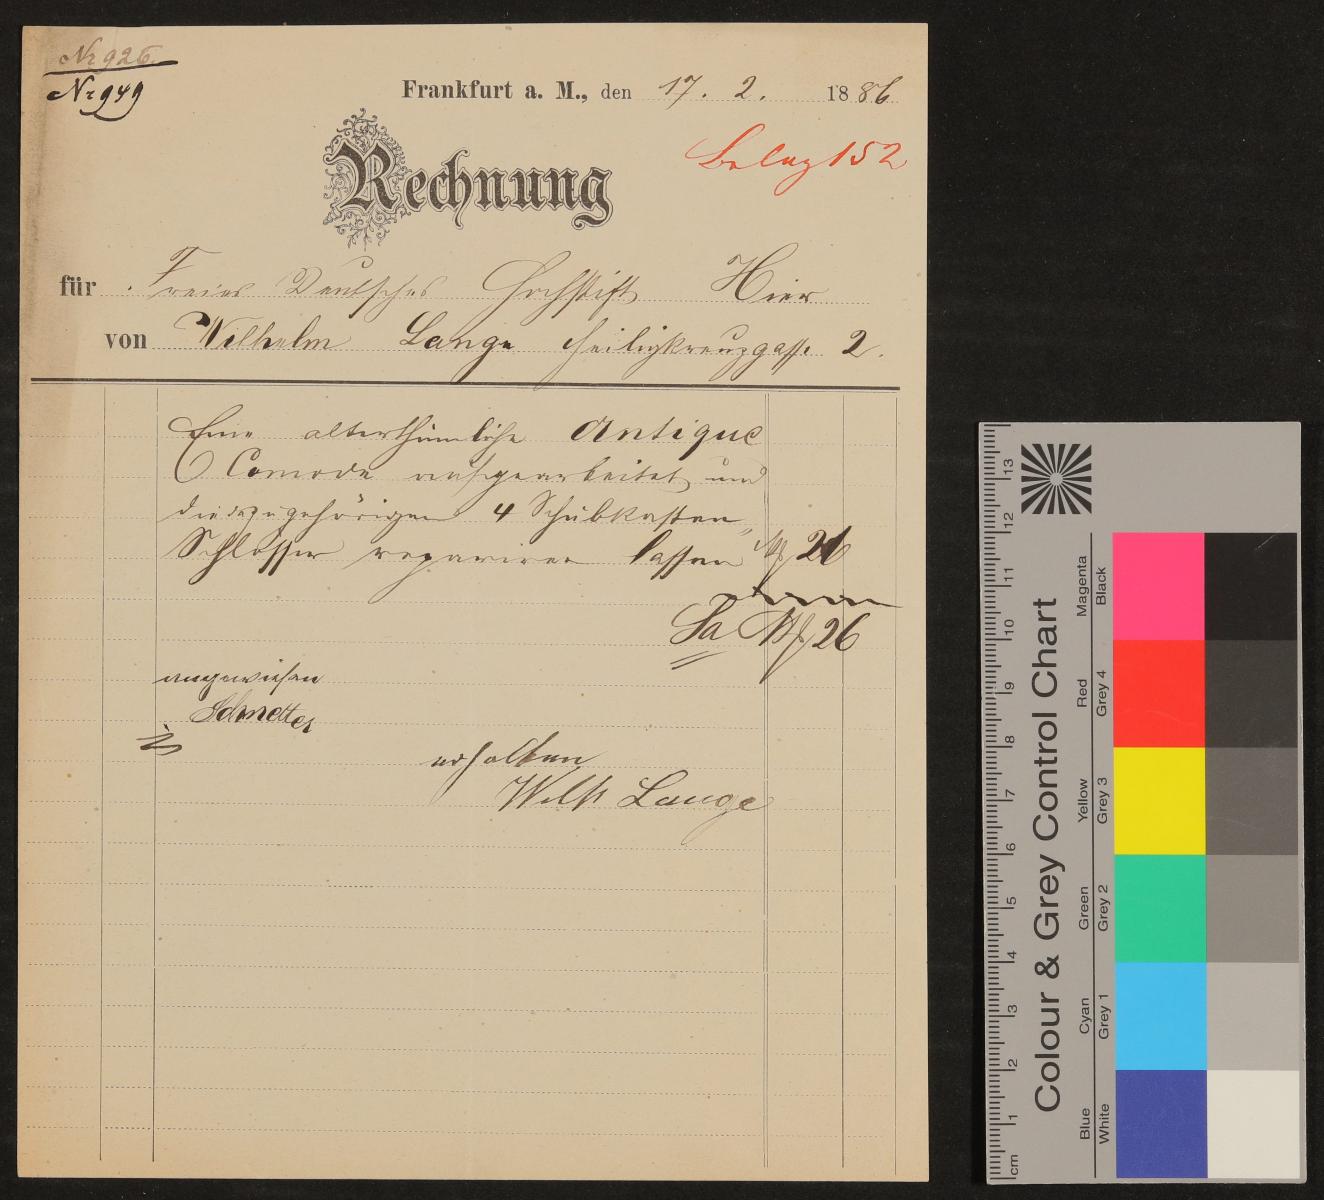 Nr 926.
Nr 949
Frankfurt a. M., den 17. 2. 1886
Beleg 152
Rechnung
für Freies Deutsches Hochstift Hier
von Wilhelm Lange Heiligkreuzgasse 2.
Eine alterthümliche Antique
Comode aufgearbeitet und
die dazugehörigen 4 Schubkasten
Schlösser repariren lassen Mk 26
Sa Mk 26
angewiesen
erhalten
Wilh Lange
Colour & Grey Control Chart
Blue Cyan Green Yellow Red Magenta
White Grey 1 Grey 2 Grey 3 Grey 4 Black
cm 1 2 3 4 5 6 7 8 9 10 11 12 13